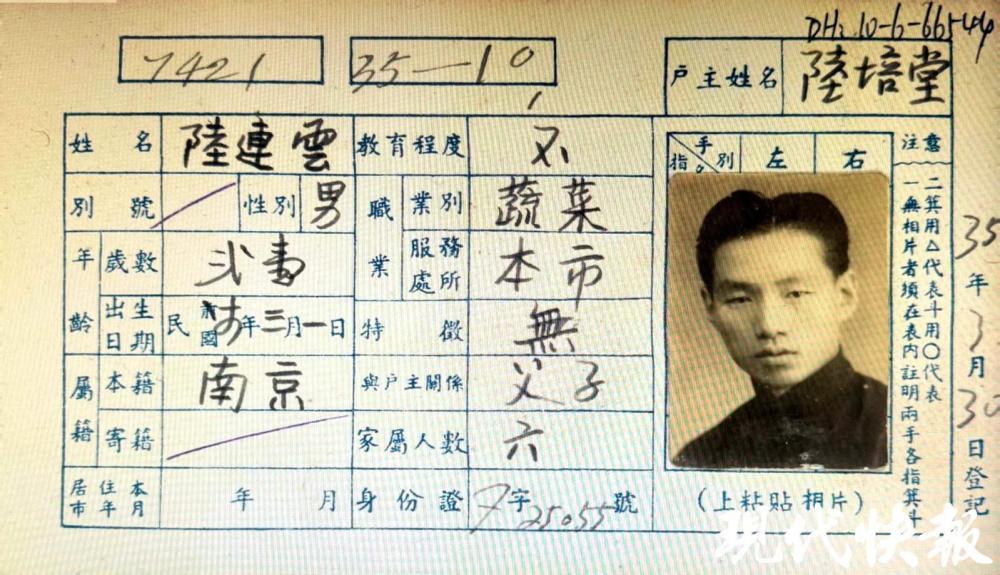 DH: 10-6-66544
7421 35—10 户主姓名 陸培堂
姓名 陸連雲 教育程度 不
別號 性別 男 職業 業別 蔬菜
年齡 歲數 服務處所 本市
出生日期 民國 年三月一日 特徵 無
屬籍 本籍 南京 與户主關係 父子
寄籍 家屬人數 六
居住本市年月 年 月 身份證 字25055號
手別 指 左 右
(上粘貼相片)
注意
一無相片者須在表內註明兩手各指箕斗
二箕用△代表斗用〇代表
35年3月30日登記
現代快報